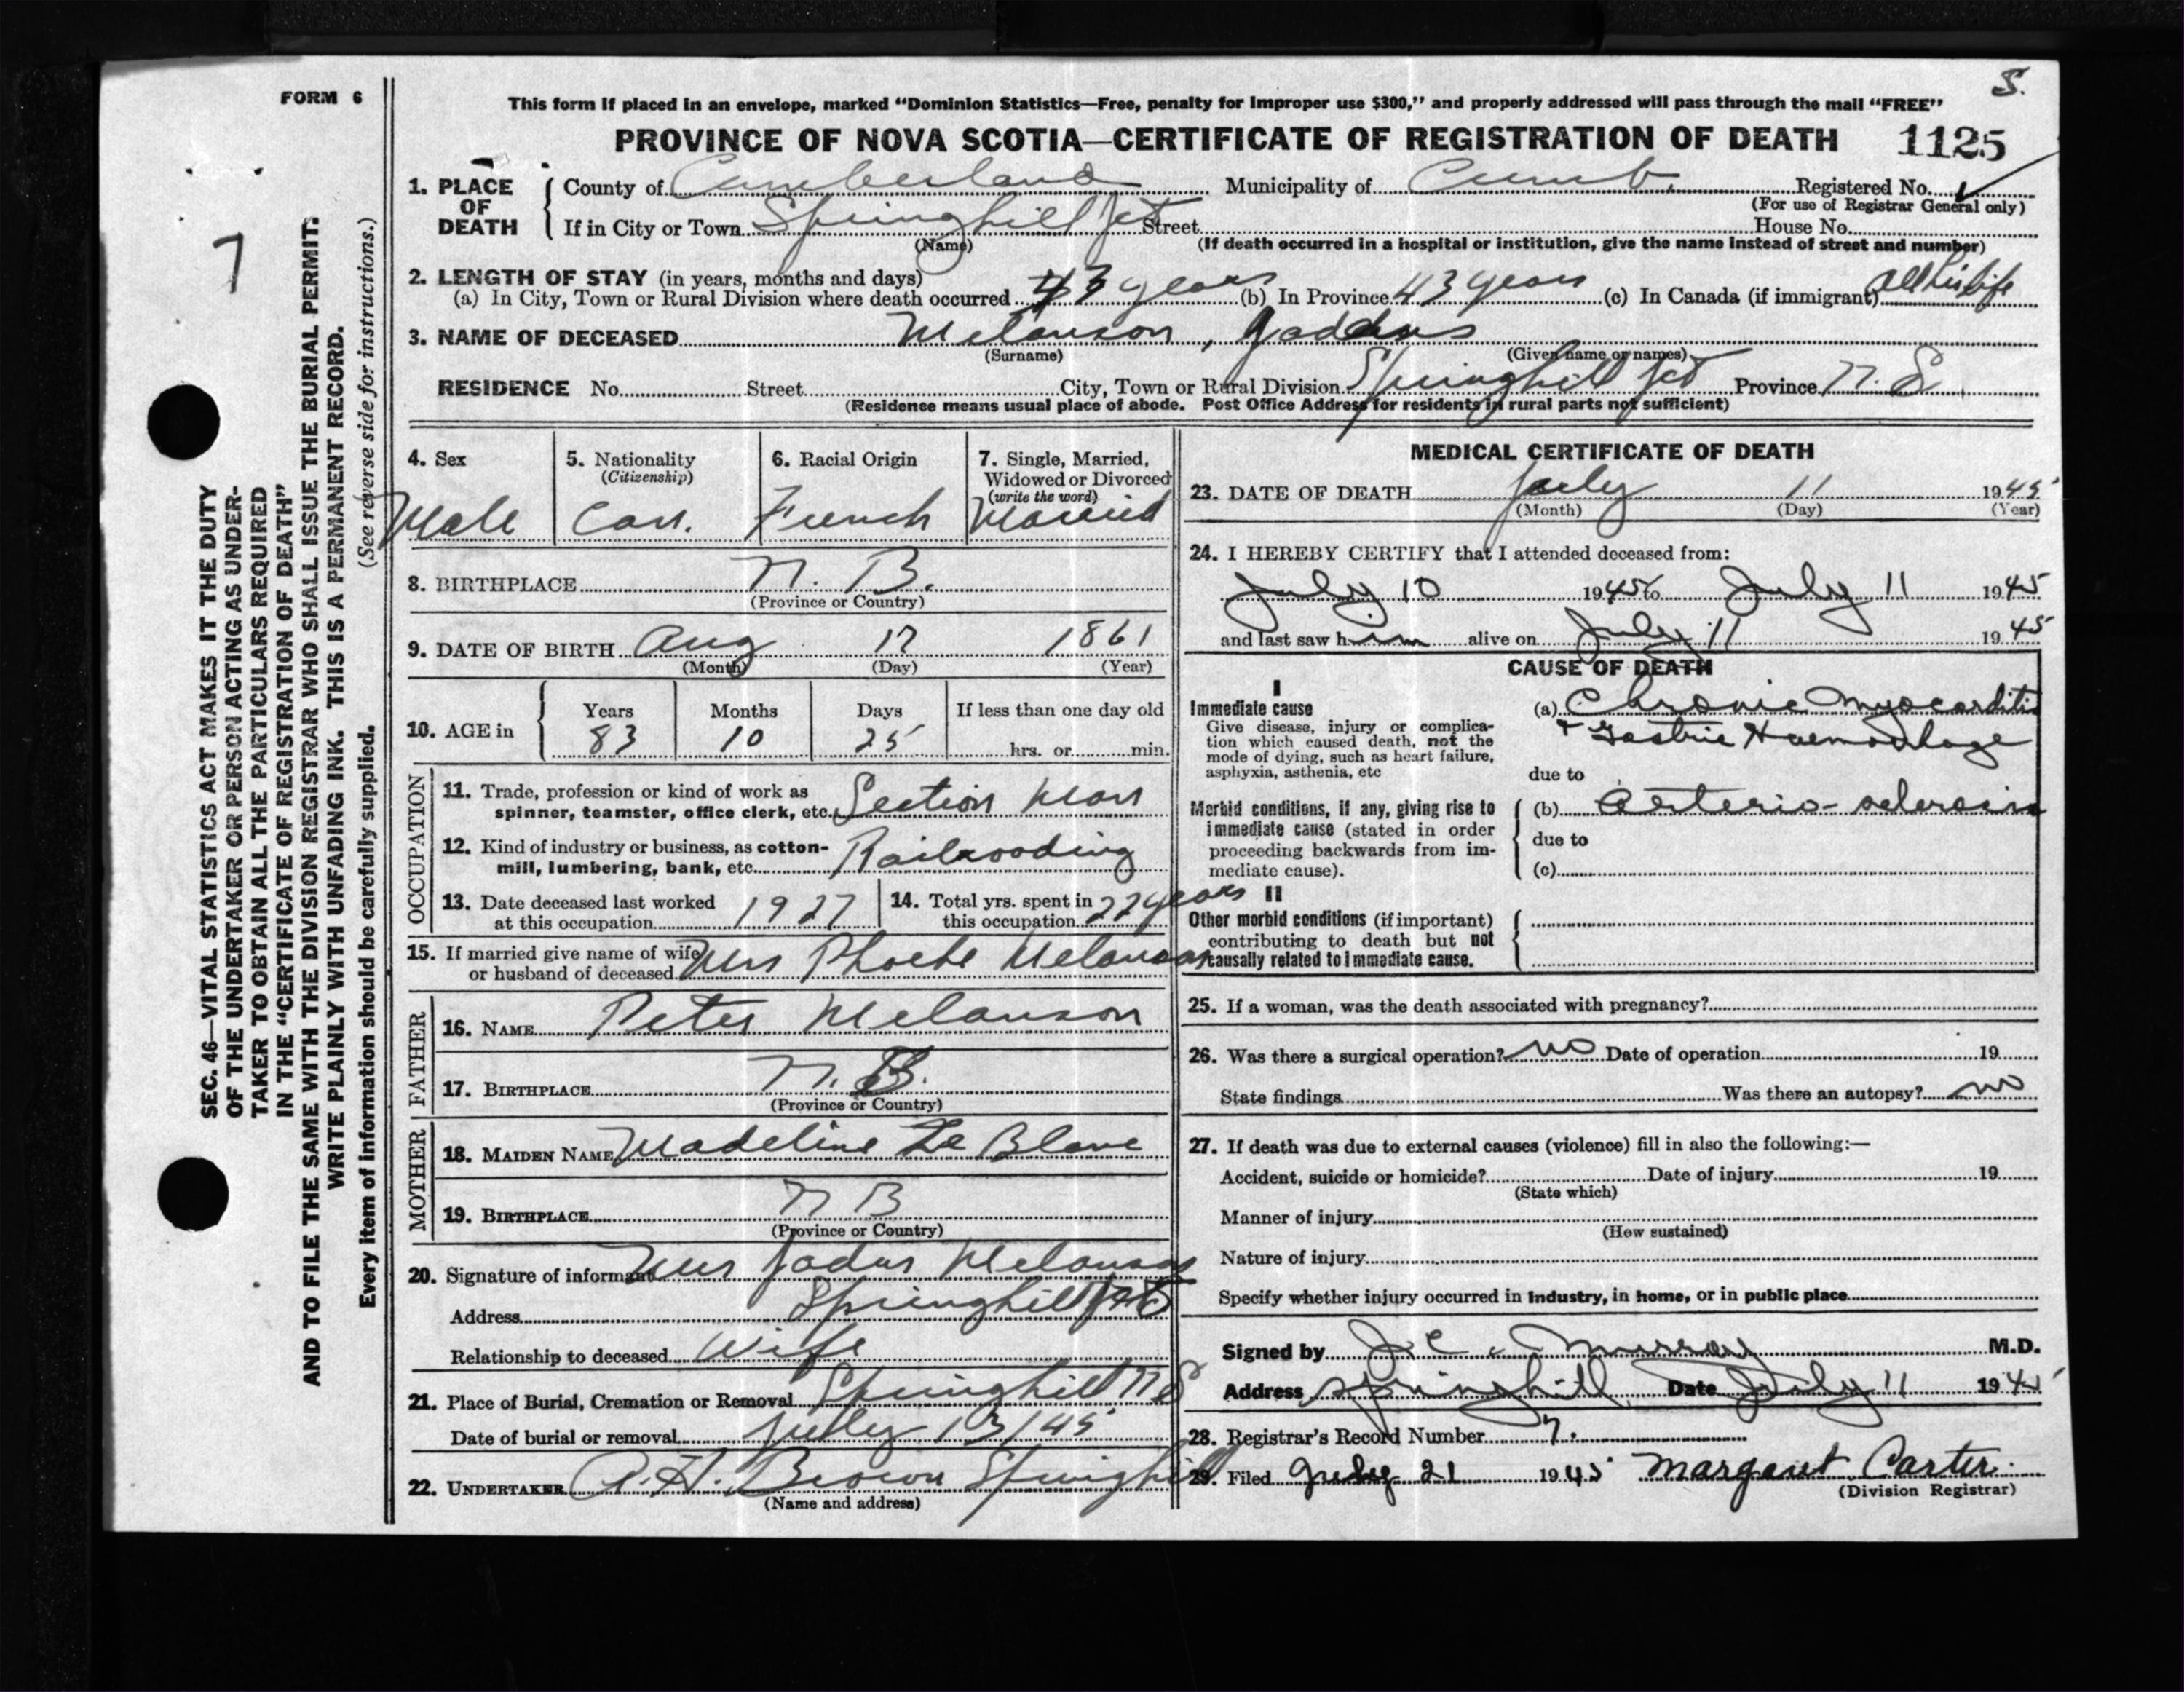 S.
FORM 6
This form if placed in an envelope, marked "Dominion Statistics—Free, penalty for improper use $300," and properly addressed will pass through the mail "FREE"
PROVINCE OF NOVA SCOTIA—CERTIFICATE OF REGISTRATION OF DEATH 1125
1. PLACE OF DEATH
County of Cumberland Municipality of Cumb. Registered No.
(For use of Registrar General only)
If in City or Town Springhill Jct Street House No.
(Name) (If death occurred in a hospital or institution, give the name instead of street and number)
2. LENGTH OF STAY (in years, months and days)
(a) In City, Town or Rural Division where death occurred 43 years (b) In Province 43 years (c) In Canada (if immigrant) all his life
3. NAME OF DECEASED Melanson,
(Surname) (Given name or names)
RESIDENCE No. Street City, Town or Rural Division Springhill Jct Province N.S.
(Residence means usual place of abode. Post Office Address for residents in rural parts not sufficient)
4. Sex Male
5. Nationality (Citizenship) Can.
6. Racial Origin French
7. Single, Married, Widowed or Divorced (write the word) Married
8. BIRTHPLACE N. B.
(Province or Country)
9. DATE OF BIRTH Aug 17 1861
(Month) (Day) (Year)
10. AGE in Years 83 Months 10 Days 25 If less than one day old hrs. or min.
OCCUPATION
11. Trade, profession or kind of work as
spinner, teamster, office clerk, etc. Section Man
12. Kind of industry or business, as cotton-
mill, lumbering, bank, etc. Railroading
13. Date deceased last worked
at this occupation 1927
14. Total yrs. spent in
this occupation 22 years
15. If married give name of wife
or husband of deceased Mrs Phoebe Melanson
FATHER
16. NAME Peter Melanson
17. BIRTHPLACE N. B.
(Province or Country)
MOTHER
18. MAIDEN NAME Madeline Le Blanc
19. BIRTHPLACE N B
(Province or Country)
20. Signature of informant Mrs Jadus Melanson
Address Springhill Jct
Relationship to deceased Wife
21. Place of Burial, Cremation or Removal Springhill N S
Date of burial or removal July 13/45
22. UNDERTAKER A. H. Brown Springhill
(Name and address)
MEDICAL CERTIFICATE OF DEATH
23. DATE OF DEATH July 11 1945
(Month) (Day) (Year)
24. I HEREBY CERTIFY that I attended deceased from:
July 10 1945 to July 11 1945
and last saw him alive on July 11 1945
CAUSE OF DEATH
I
Immediate cause
Give disease, injury or complica-
tion which caused death, not the
mode of dying, such as heart failure,
asphyxia, asthenia, etc
(a) Chronic Myocarditis
+ Gastric Haemorrhage
due to
Morbid conditions, if any, giving rise to
immediate cause (stated in order
proceeding backwards from im-
mediate cause).
(b) Arterio-sclerosis
due to
(c)
II
Other morbid conditions (if important)
contributing to death but not
causally related to immediate cause.
25. If a woman, was the death associated with pregnancy?
26. Was there a surgical operation? no Date of operation 19
State findings Was there an autopsy? no
27. If death was due to external causes (violence) fill in also the following:—
Accident, suicide or homicide? Date of injury 19
(State which)
Manner of injury
(How sustained)
Nature of injury
Specify whether injury occurred in industry, in home, or in public place
Signed by J. C. Murray M.D.
Address Springhill Date July 11 1945
28. Registrar's Record Number 7.
29. Filed July 21 1945 Margaret Carter
(Division Registrar)
7
SEC. 46—VITAL STATISTICS ACT MAKES IT THE DUTY
OF THE UNDERTAKER OR PERSON ACTING AS UNDER-
TAKER TO OBTAIN ALL THE PARTICULARS REQUIRED
IN THE "CERTIFICATE OF REGISTRATION OF DEATH"
AND TO FILE THE SAME WITH THE DIVISION REGISTRAR WHO SHALL ISSUE THE BURIAL PERMIT.
WRITE PLAINLY WITH UNFADING INK. THIS IS A PERMANENT RECORD.
Every item of information should be carefully supplied. (See reverse side for instructions.)